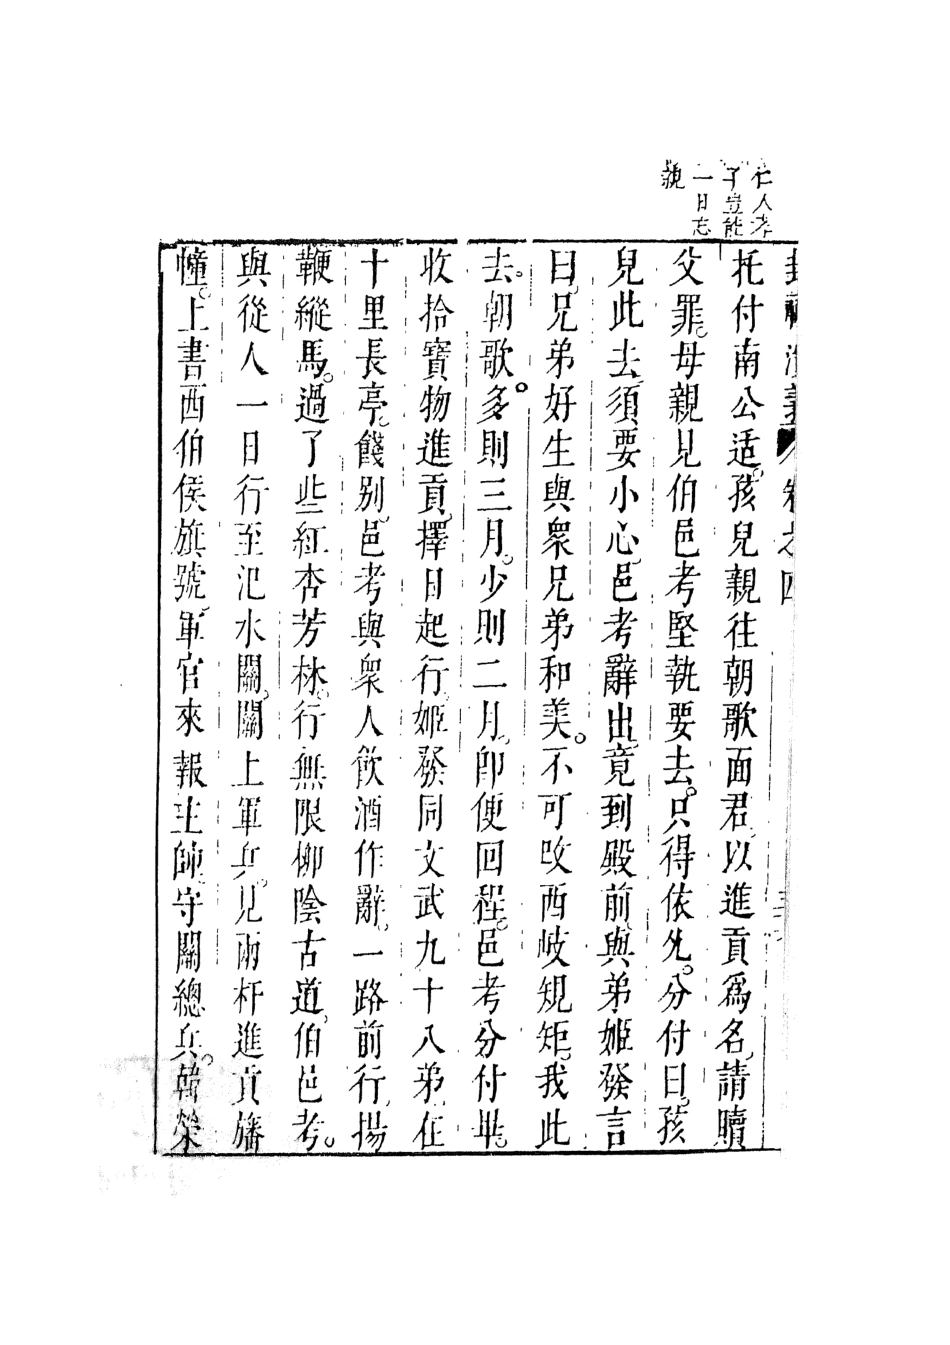 仁人孝
子豈能
一日忘
親
封神演義 卷之四
托付南公适。孩兒親往朝歌面君。以進貢爲名。請贖
父罪。母親見伯邑考堅執要去。只得依允。分付曰。孩
兒此去。須要小心。邑考辭出。竟到殿前。與弟姬發言
曰。兄弟好生與衆兄弟和美。不可改西岐規矩。我此
去。朝歌。多則三月。少則二月。卽便回程。邑考分付畢。
收拾寶物進貢。擇日起行。姬發同文武九十八弟。在
十里長亭。餞别。邑考與衆人飲酒作辭。一路前行。揚
鞭縱馬。過了些紅杏芳林。行無限柳陰古道。伯邑考。
與從人一日行至汜水關。關上軍兵。見兩杆進貢旛
幢。上書西伯侯旗號。軍官來報主帥。守關總兵。韓榮